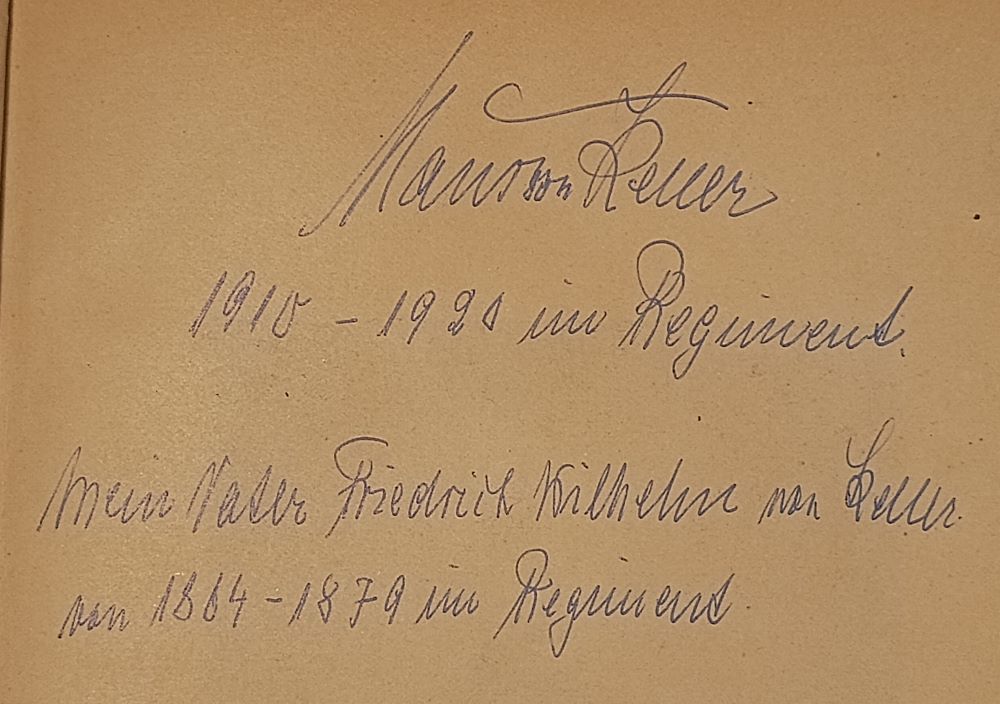 Hans von Keller
1910 - 1920 im Regiment.
Mein Vater Friedrich Wilhelm von Keller
von 1864 - 1879 im Regiment.